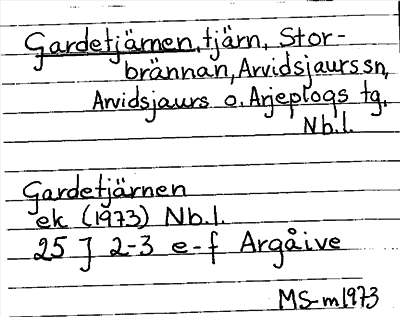 Gardetjärnen, tjärn, Stor-
brännan, Arvidsjaurs sn,
Arvidsjaurs o. Arjeplogs tg,
Nb.l.
Gardetjärnen
ek (1973) Nb.l.
25 J 2-3 e-f Argåive
MS-m 1973